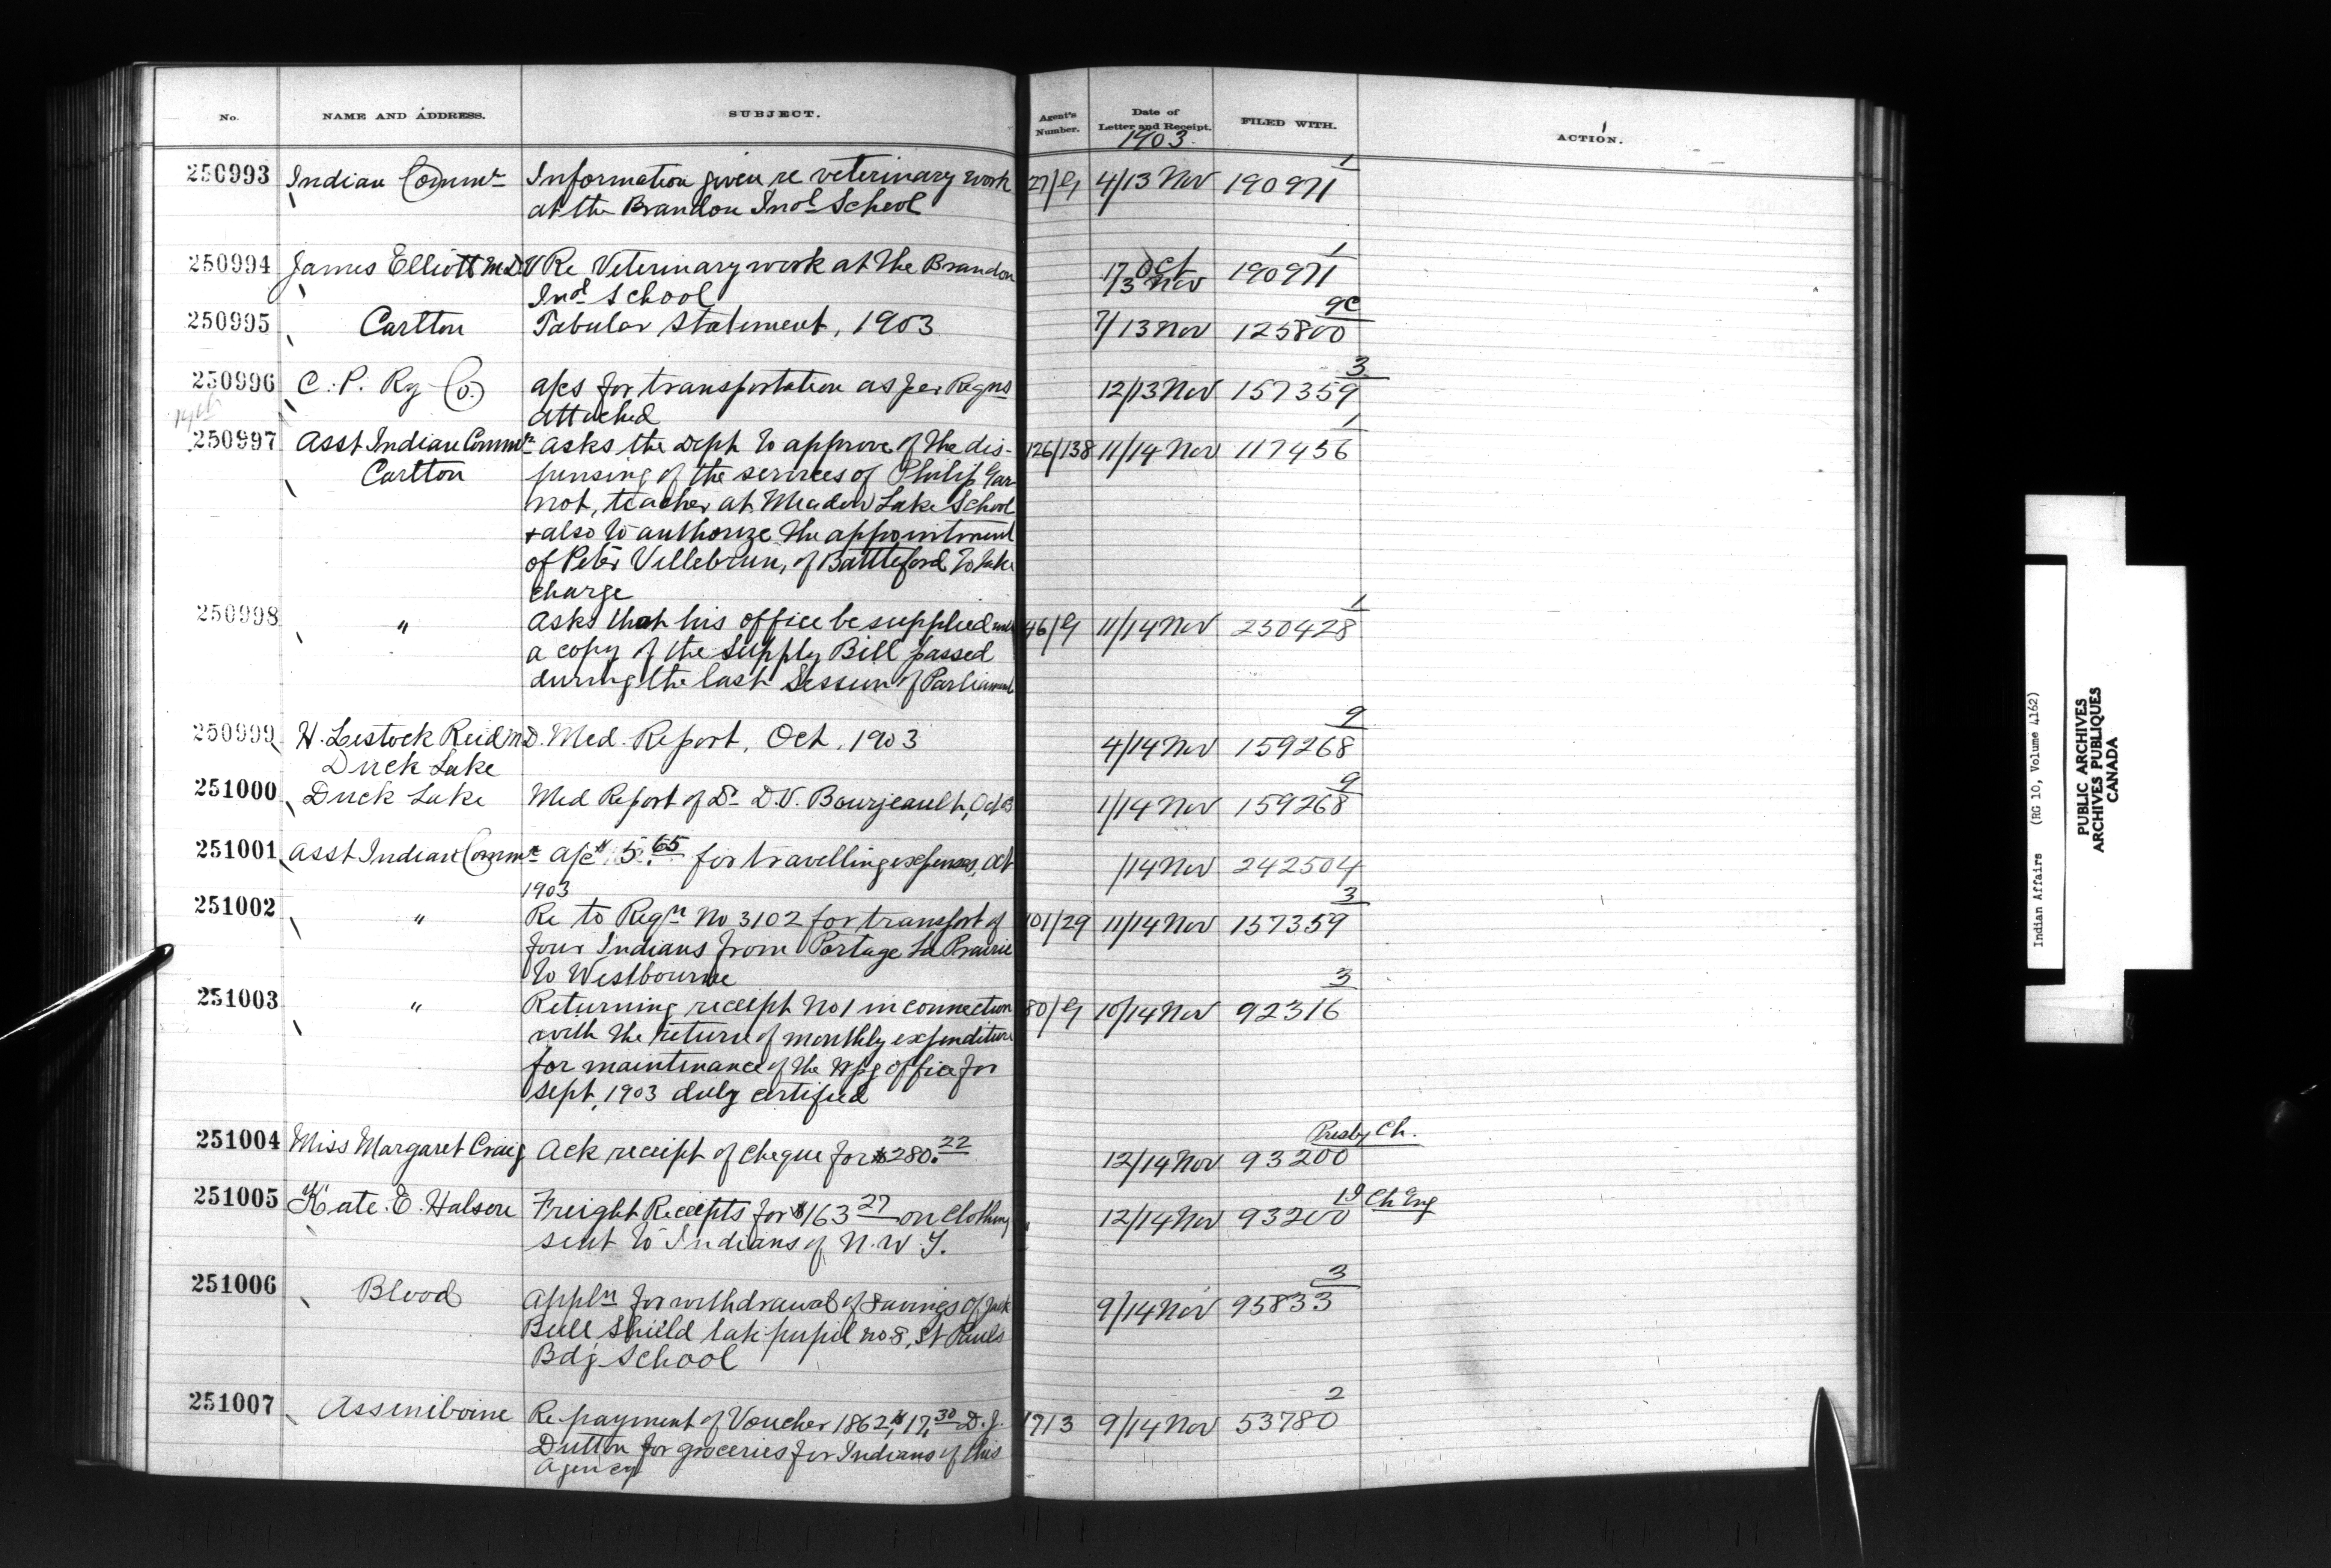 No. NAME AND ADDRESS. SUBJECT. Agent's Number. Date of Letter and Receipt. FILED WITH. ACTION.
1903
1
250993 Indian Commr Information given re veterinary work 27/G 4/13 Nov 190971
at the Brandon Indl School
1
250994 James Elliott M.D.V Re Veterinary work at the Brandon 17 Oct/13 Nov 190971
Indl School
9C
250995 Carlton Tabular Statement, 1903 7/13 Nov 125800
3
250996 C. P. Ry Co. a/cs for transportation as per Reqns 12/13 Nov 157359
attached
1
250997 Asst Indian Commr Asks the Dept to approve of the dis- 126/138 11/14 Nov 117456
Carlton pensing of the services of Philip Gar-
not, teacher at Meadow Lake School
+ also to authorize the appointment
of Peter Villebrun, of Battleford to take
charge
1
250998 " Asks that his office be supplied with 46/G 11/14 Nov 250428
a copy of the Supply Bill passed
during the last Session of Parliament
9
250999 H. Lestock Reid M.D. Med. Report, Oct, 1903 4/14 Nov 159268
Duck Lake
9
251000 Duck Lake Med Report of Dr D.V. Bourjeault, Oct 03 1/14 Nov 159268
251001 Asst Indian Commr a/c $5.65 for travelling expenses, Oct /14 Nov 242504
1903
3
251002 " Re to Reqn No 3102 for transport of 101/29 11/14 Nov 157359
four Indians from Portage La Prairie
to Westbourne
3
251003 " Returning receipt No 1 in connection 80/G 10/14 Nov 92316
with the return of monthly expenditure
for maintenance of the Wpg office for
Sept, 1903 duly certified
Presby Ch.
251004 Miss Margaret Craig Ack receipt of cheque for $280.22 12/14 Nov 93200
19 Ch of Eng
251005 Kate. E. Halson Freight Receipts for $163 27 on clothing 12/14 Nov 93200
sent to Indians of N.W.T.
3
251006 Blood Appln for withdrawal of Savings of Jack 9/14 Nov 95833
Bull Shield late pupil no 8, St Pauls
Bdg School
2
251007 Assiniboine Re payment of Voucher 1862, $17.30 D.J. 1713 9/14 Nov 53780
Dutton for groceries for Indians of this
Agency
Indian Affairs (RG 10, Volume 4162)
PUBLIC ARCHIVES
ARCHIVES PUBLIQUES
CANADA